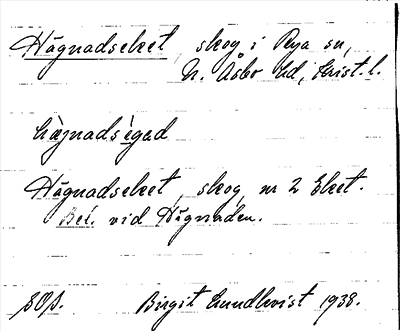 Hägnadseket, skog i Rya sn,
N. Åsbo hd, Krist. l.
hägnadsègad
Hägnadseket, skog, nr 2 Eket.
Bel. vid Hägnaden.
SOP. Birgit Lundkvist 1938.